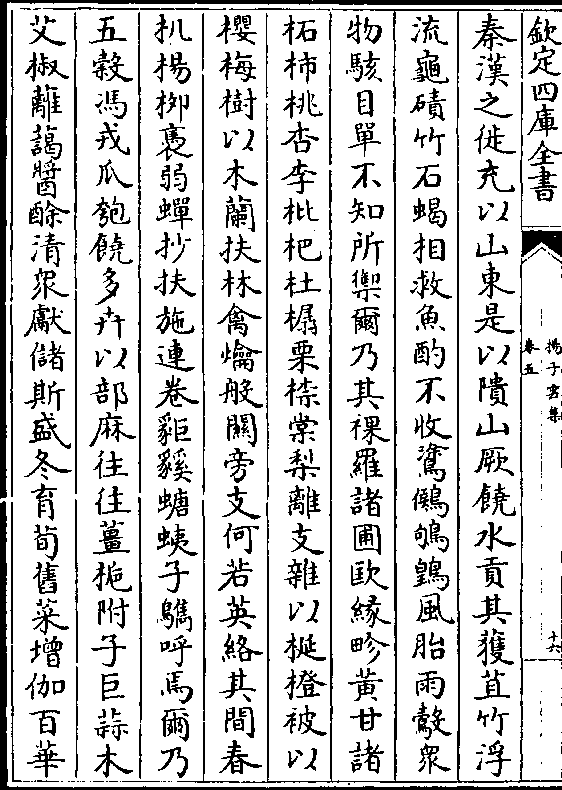 欽定四庫全書
揚子雲集
卷五
十六
秦漢之徙充以山東是以隤山厥饒水貢其獲苴竹浮
流龜磧竹石蝎相救魚酌不收鴽䳺鴝鵠風胎雨鷇衆
物駭目單不知所禦爾乃其祼羅諸圃䧢緣畛黄甘諸
柘柿桃杏李枇杷杜樼栗㮈棠梨離支雜以梴橙被以
櫻梅樹以木蘭扶林禽爚般關旁支何若英絡其間春
扒楊柳褭弱蟬抄扶施連卷䝙貕螗蛦子鶪呼焉爾乃
五榖馮戎瓜匏饒多卉以部麻往往薑梔附子巨蒜木
艾椒離藹醬酴清衆獻儲斯盛冬育荀舊菜增伽百華